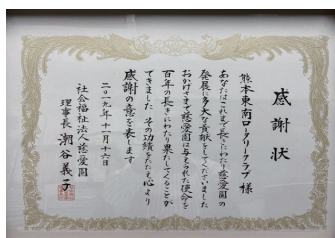 感謝状
熊本東南ロータリークラブ 様
あなたはこれまで長きにわたり慈愛園の
発展に多大な貢献をしてくださいました
おかげさまで慈愛園は与えられた使命を
百年の長きにわたり果たしてくることが
できました その功績をたたえ心より
感謝の意を表します
二〇一九年十一月十六日
社会福祉法人慈愛園
理事長 潮谷義子